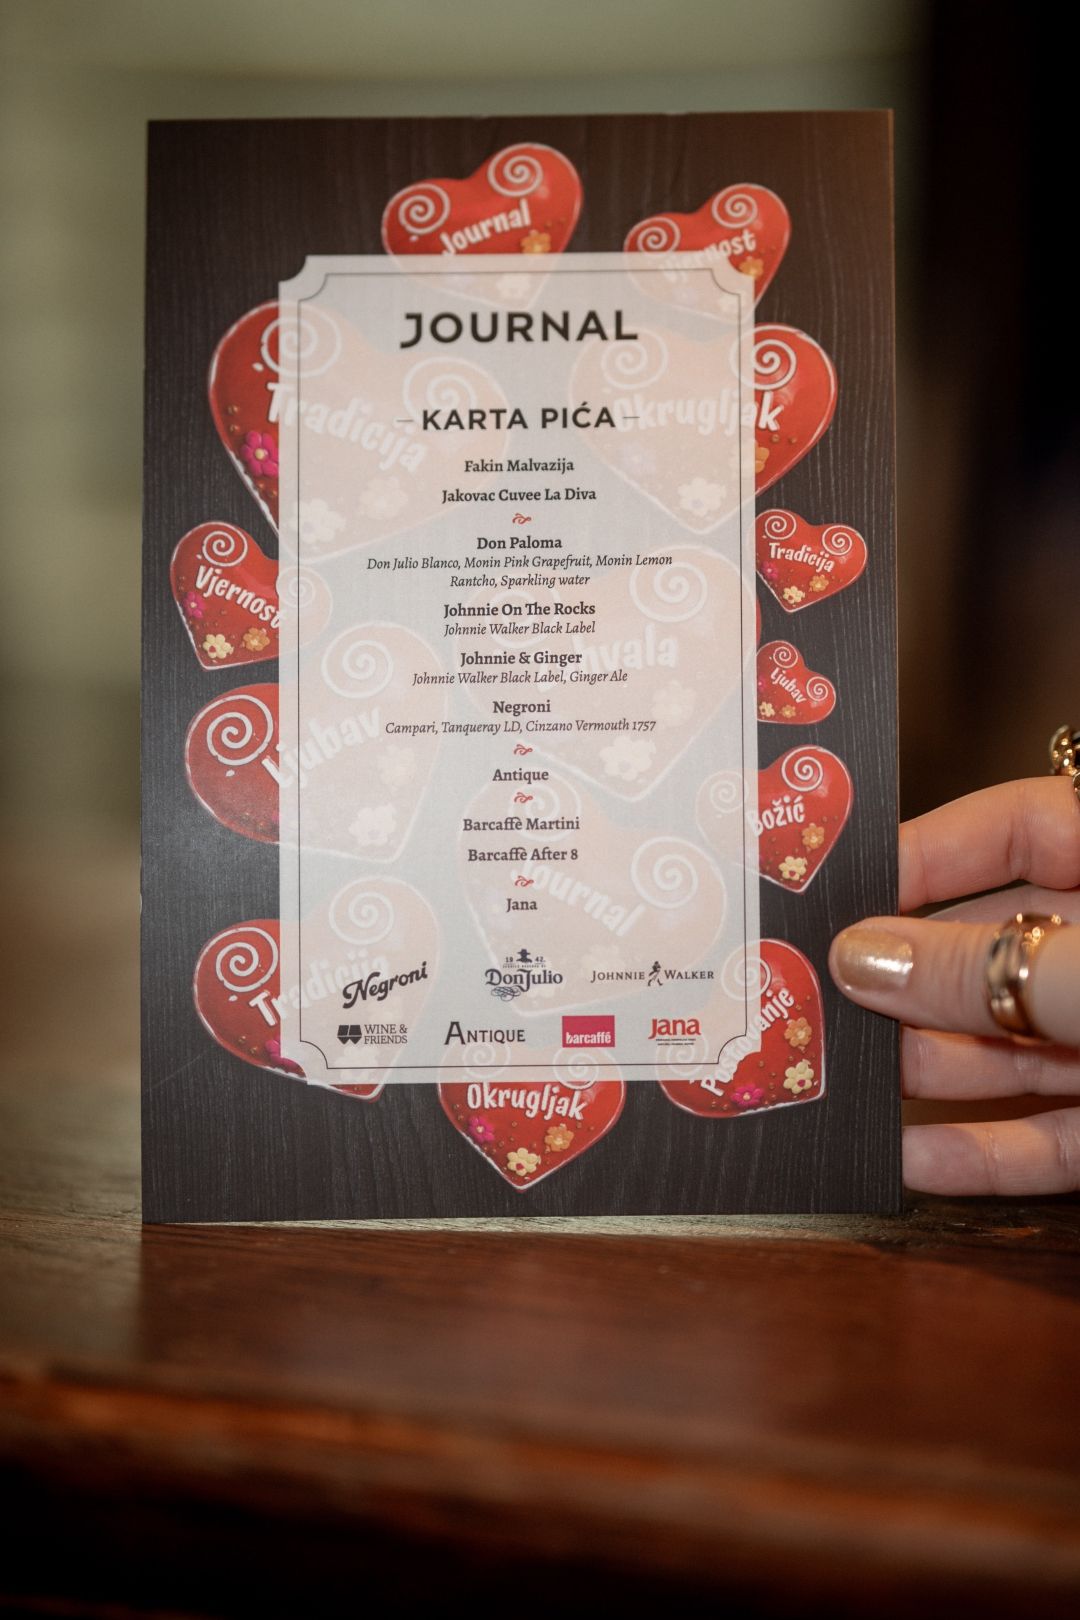 Journal
Vjernost
JOURNAL
Tradicija
Okrugljak
KARTA PIĆA
Fakin Malvazija
Jakovac Cuvee La Diva
Don Paloma
Don Julio Blanco, Monin Pink Grapefruit, Monin Lemon
Rantcho, Sparkling water
Tradicija
Vjernost
Johnnie On The Rocks
Johnnie Walker Black Label
Johnnie & Ginger
Johnnie Walker Black Label, Ginger Ale
Ljubav
Negroni
Campari, Tanqueray LD, Cinzano Vermouth 1757
Ljubav
Antique
Božić
Barcaffè Martini
Barcaffè After 8
Jana
Journal
Tradicija
Negroni
19 42.
Don Julio
JOHNNIE WALKER
WINE &
FRIENDS
ANTIQUE
barcaffè
Jana
Poštovanje
Okrugljak